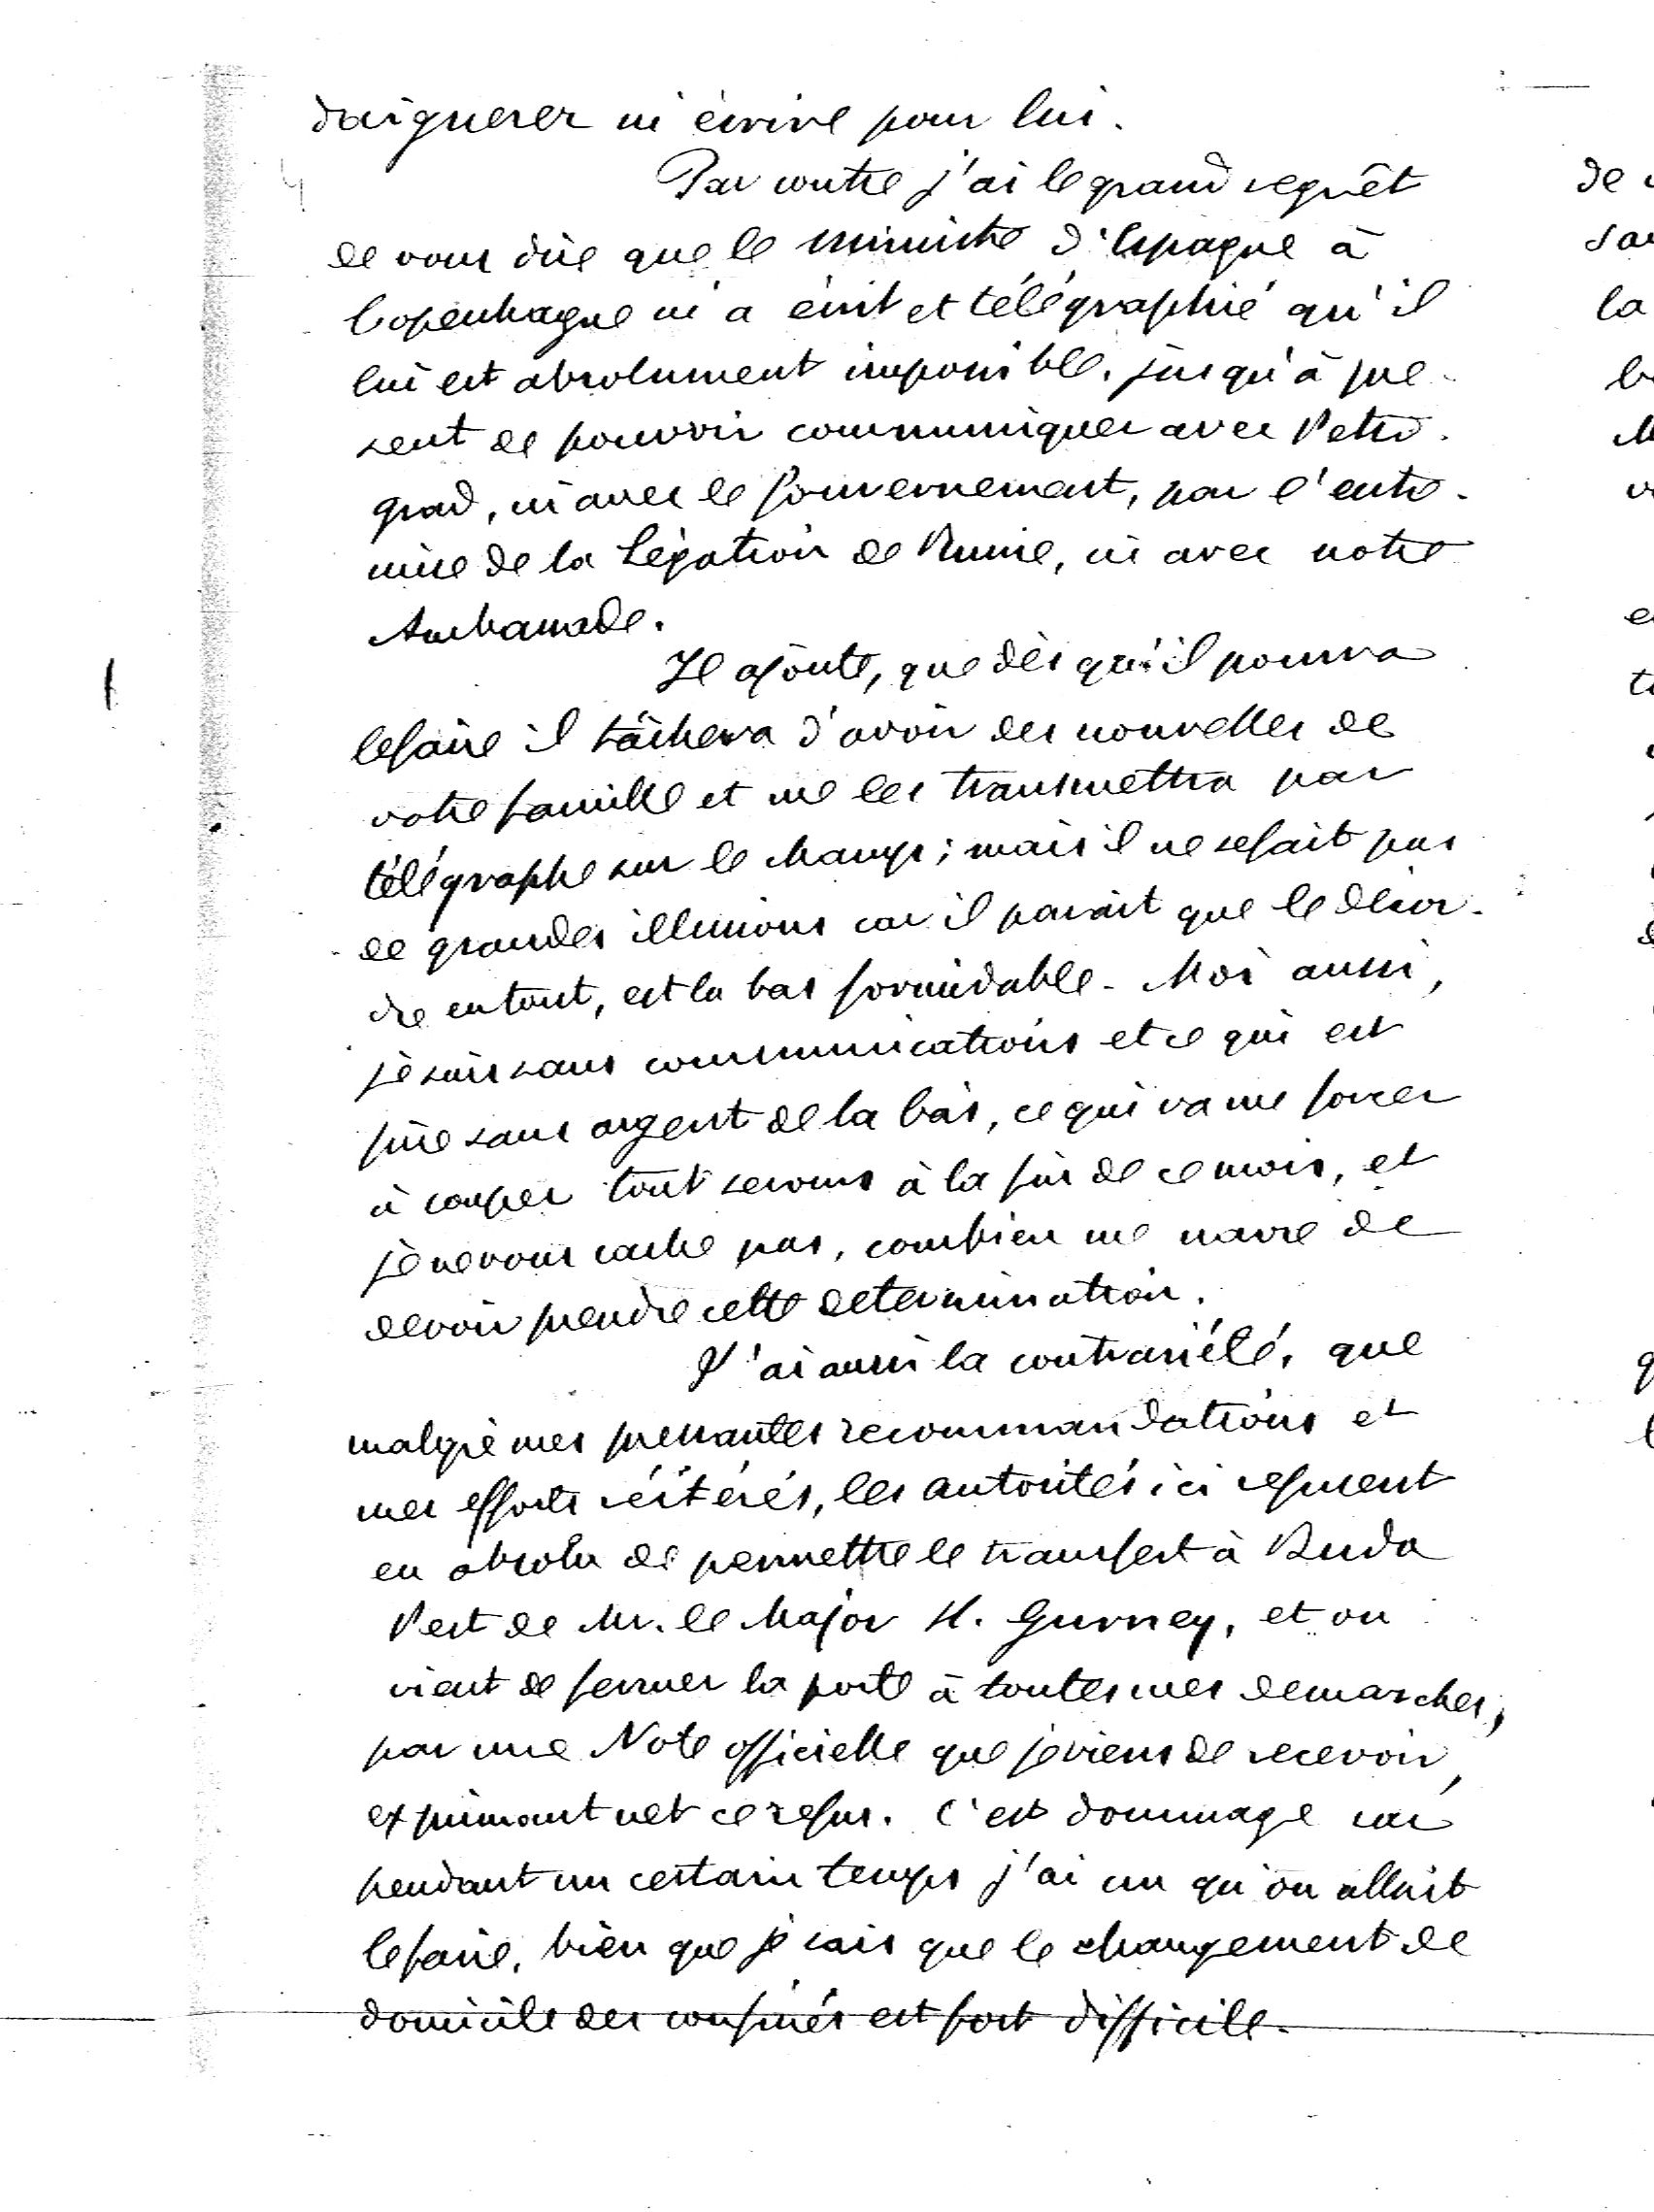 daignerez m'écrire pour lui.
Par contre j'ai le grand regrêt
de vous dire que le Ministre d'Espagne à
Copenhague m'a écrit et télégraphié qu'il
lui est absolument impossible, jusqu'à pre-
sent de pouvoir communiquer avec Petro-
grad, ni avec le Gouvernement, par l'entre-
mise de la Légation de Russie, ni avec notre
Ambassade.
Il ajoute, que dès qu'il pourra
le faire il tâchera d'avoir des nouvelles de
votre famille et me les transmettra par
télégraphe sur le champ; mais il ne se fait pas
de grandes illusions car il parait que le désor-
dre en tout, est la bas formidable. Moi aussi,
je suis sans communications et ce qui est
pire sans argent de la bas, ce qui va me forcer
à couper tout secours à la fin de ce mois, et
je ne vous cache pas, combien me navre de
devoir prendre cette determination.
J'ai aussi la contrariété, que
malgré mes pressantes recommandations et
mes efforts réitérés, les autorités ici refusent
en absolu de permettre le transfert à Buda
Pest de Mr. le Major H. Gurney, et on
vient de fermer la porte à toutes mes demarches,
par une Note officielle que je viens de recevoir,
exprimant net ce refus. C'est dommage car
pendant un certain temps j'ai cru qu'on allait
le faire, bien que je sais que le changement de
domicile des confinés est fort difficile.
de
la